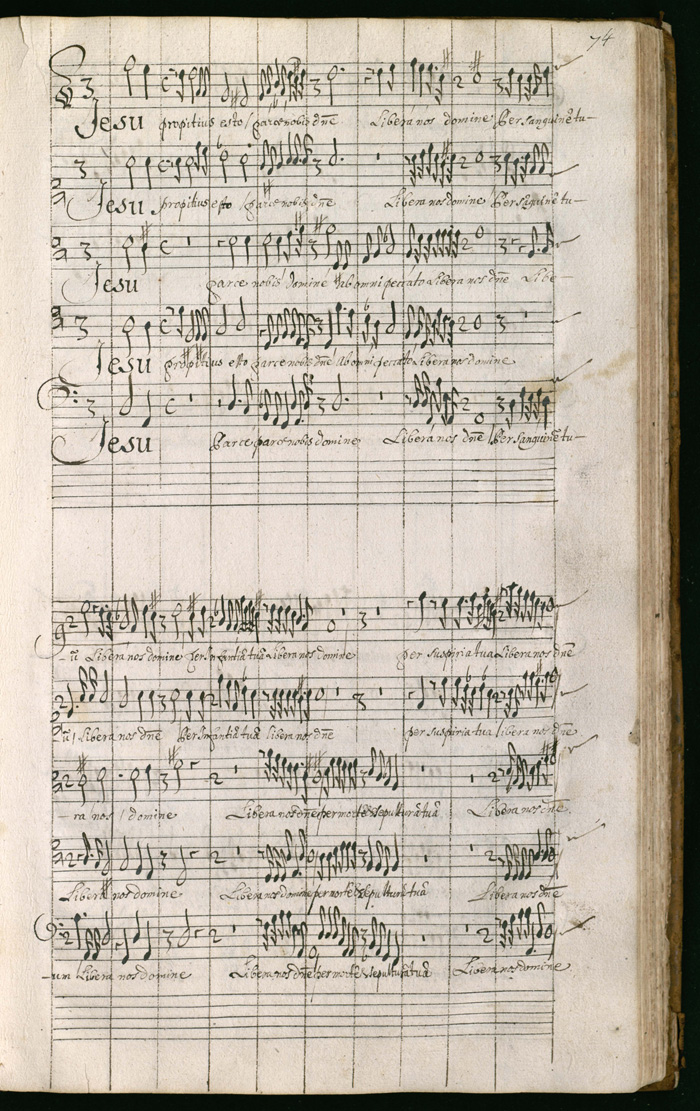 74
Jesu propitius esto / parce nobis dñe Libera nos domine / Per sanguinẽ tu-
Jesu propitius esto / parce nobis dñe Libera nos domine / Per sãguinẽ tu-
Jesu parce nobis domine Ab omni peccato Libera nos dñe Libe-
Jesu propitius esto parce nobis dñe / Ab omni peccato Libera nos domine
Jesu Parce parce nobis domine Libera nos dñe / Per sanguinẽ tu-
-ũ Libera nos domine per Infantiã tuã Libera nos domine per suspiria tua Libera nos dñe
ũ / Libera nos dñe Per Infantiã tuã libera nos dñe per suspiria tua / libera nos dñe
-ra nos / domine Libera nos dñe / per mortẽ & sepulturã tuã Libera nos dñe
Libera nos domine Libera nos domine per mortẽ & sepulturã tuã Libera nos dñe
-um Libera nos domine Libera nos dñe / per mortẽ & sepulturã tuã Libera nos domine